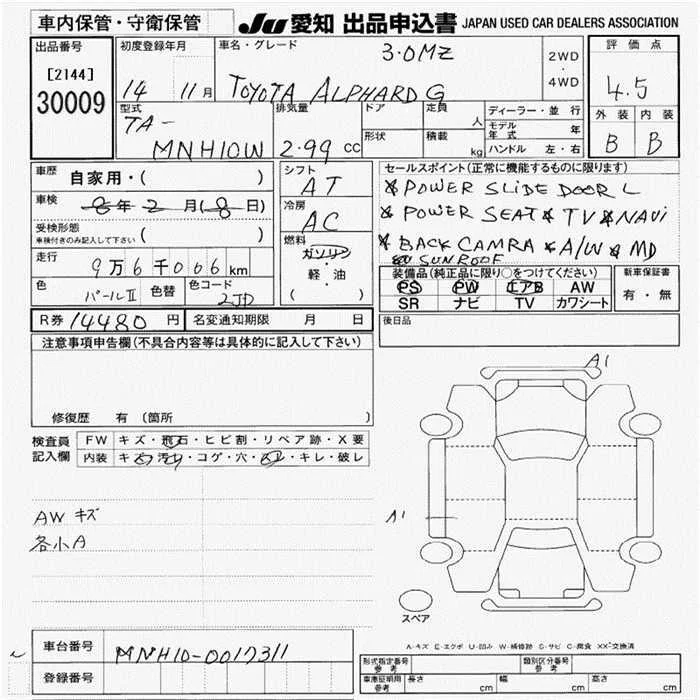 車内保管・守衛保管
JU 愛知 出品申込書 JAPAN USED CAR DEALERS ASSOCIATION
出品番号
[2144]
30009
初度登録年月
14 11月
車名・グレード
3.0MZ
TOYOTA ALPHARD G
2WD
・
4WD
評価点
4.5
外装 内装
B B
型式
TA-
MNH10W
排気量
2.99 cc
ドア
定員
人
形状
積載
kg
ディーラー・並行
モデル年式 年
ハンドル 左・右
車歴
自家用・( )
車検
8年2月(8日)
受検形態
車検付きのみ記入して下さい
( )
走行
9万6千006km
色
パールII
色替
色コード
2JD
シフト
AT
冷房
AC
燃料
ガソリン
・
軽・油
( )
セールスポイント(正常に機能するものに限ります)
* POWER SLIDE DOOR L
* POWER SEAT * TV * NAVi
* BACK CAMRA * A/W * MD
SUNROOF
装備品(純正品に限り○をつけてください)
PS PW エアB AW
SR ナビ TV カワシート
新車保証書
有・無
R券 14480円
名変通知期限 月 日
後日品
注意事項申告欄(不具合内容等は具体的に記入して下さい)
修復歴 有(箇所 )
検査員
記入欄
FW キズ・飛石・ヒビ割・リペア跡・X要
内装 キズ・汚れ・コゲ・穴・・キレ・破レ
AW キズ
各小A
A1
A1
スペア
A-キズ E-エクボ U-凹み W-補修跡 S-サビ C-腐食 XX-交換済
車台番号
MNH10-0017311
登録番号
形式指定番号
参考
類別区分番号
参考
車庫証明用
参考
長さ cm
幅 cm
高さ cm